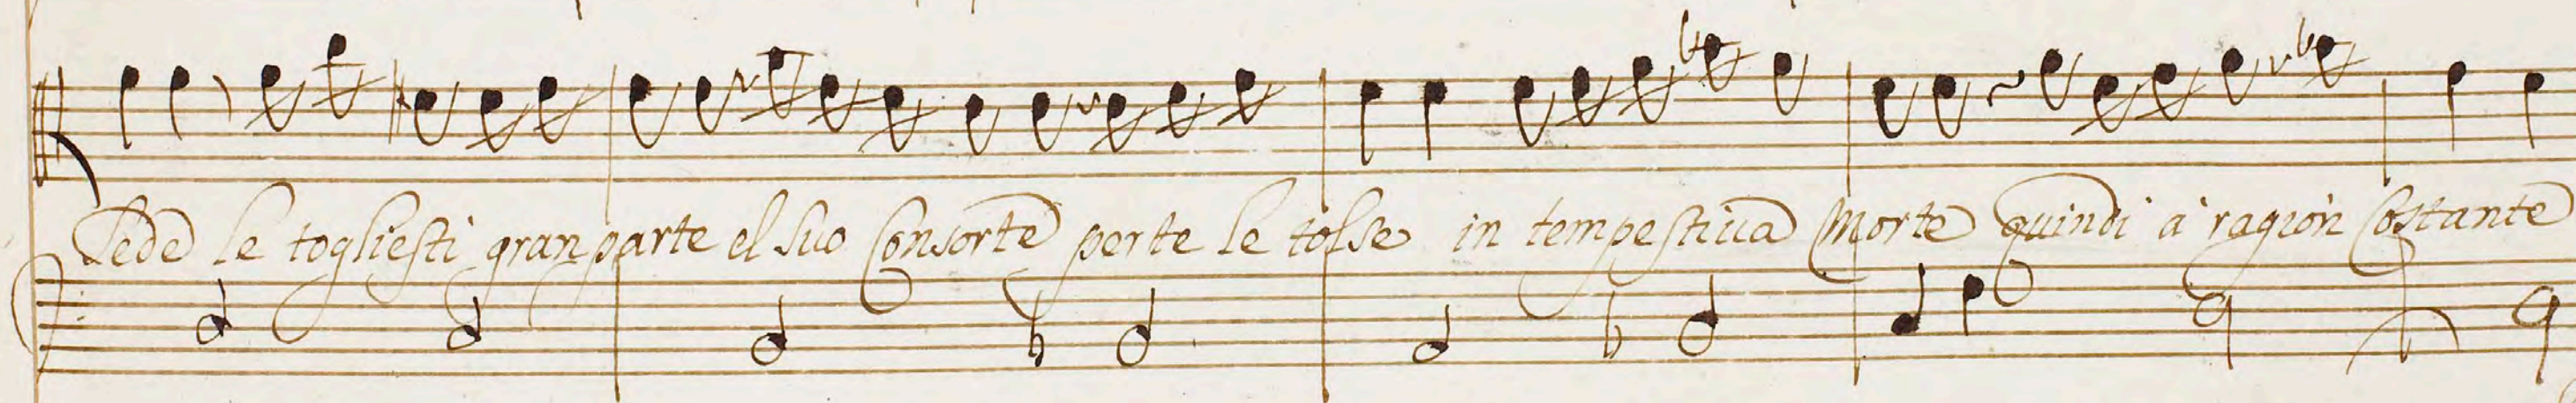 sede le togliesti gran parte el suo Consorte per te le tolse in tempestiua Morte quindi à ragion Costante